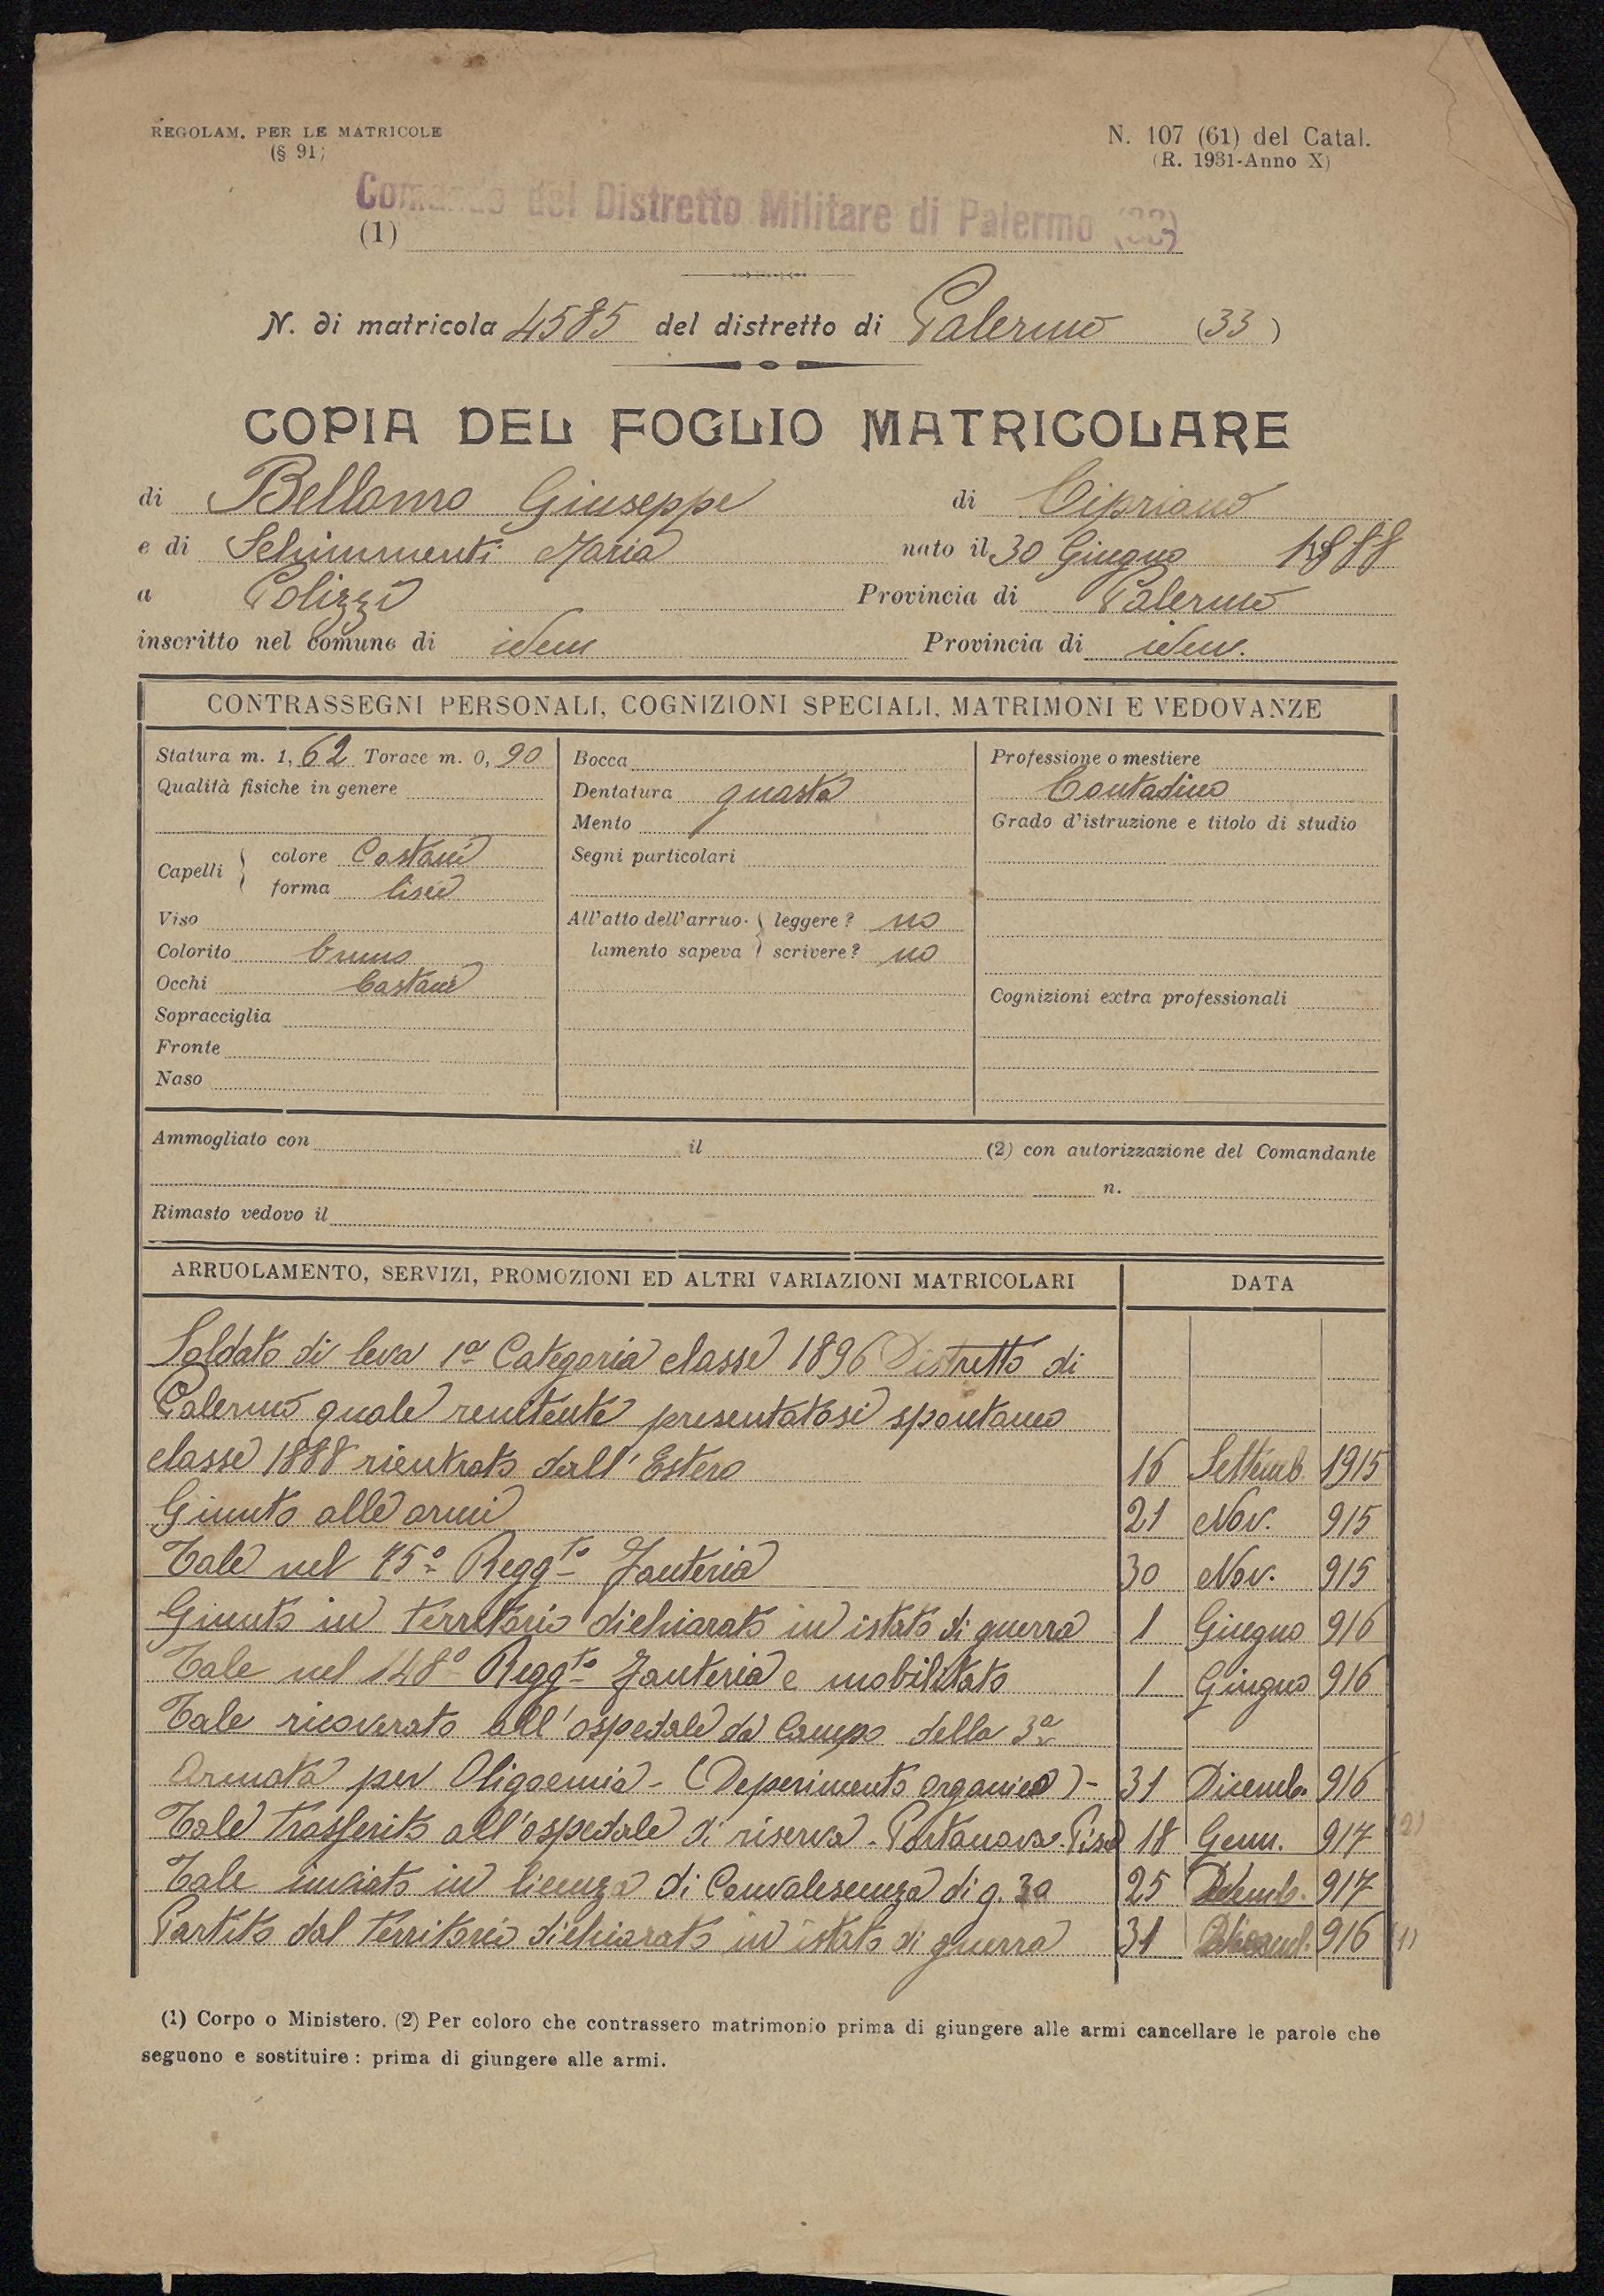 REGOLAM. PER LE MATRICOLE
(§ 91)
N. 107 (61) del Catal.
(R. 1931-Anno X)
Comando del Distretto Militare di Palermo (33)
(1)
N. di matricola 4585 del distretto di Palermo (33)
COPIA DEL FOGLIO MATRICOLARE
di Bellomo Giuseppe di Cipriano
e di Schimmenti Maria nato il 30 Giugno 1888
a Polizzi Provincia di Palermo
inscritto nel comune di idem Provincia di idem.
CONTRASSEGNI PERSONALI, COGNIZIONI SPECIALI, MATRIMONI E VEDOVANZE
Statura m. 1, 62 Torace m. 0, 90
Qualità fisiche in genere
Capelli colore Castani
forma lisci
Viso
Colorito bruno
Occhi Castani
Sopracciglia
Fronte
Naso
Bocca
Dentatura guasta
Mento
Segni particolari
All'atto dell'arruo- leggere? no
lamento sapeva scrivere? no
Professione o mestiere
Contadino
Grado d'istruzione e titolo di studio
Cognizioni extra professionali
Ammogliato con il (2) con autorizzazione del Comandante
n.
Rimasto vedovo il
ARRUOLAMENTO, SERVIZI, PROMOZIONI ED ALTRI VARIAZIONI MATRICOLARI DATA
Soldato di leva 1a Categoria classe 1896 Distretto di
Palermo quale renitente presentatosi spontaneo
classe 1888 rientrato dall'Estero 16 Settemb. 1915
Giunto alle armi 21 Nov. 915
Tale nel 75o Reggto Fanteria 30 Nov. 915
Giunto in territorio dichiarato in istato di guerra 1 Giugno 916
Tale nel 148o Reggto Fanteria e mobilitato 1 Giugno 916
Tale ricoverato all'ospedale da Campo della 3a
Armata per Oligoemia - (Deperimento organico) - 31 Dicemb. 916
Tale trasferito all'ospedale di riserva - Portanova - Pisa 18 Genn. 917 (2)
Tale inviato in licenza di Convalescenza di g. 30 25 917
Partito dal territorio dichiarato in istato di guerra 31 Dicemb. 916 (1)
(1) Corpo o Ministero. (2) Per coloro che contrassero matrimonio prima di giungere alle armi cancellare le parole che
seguono e sostituire: prima di giungere alle armi.